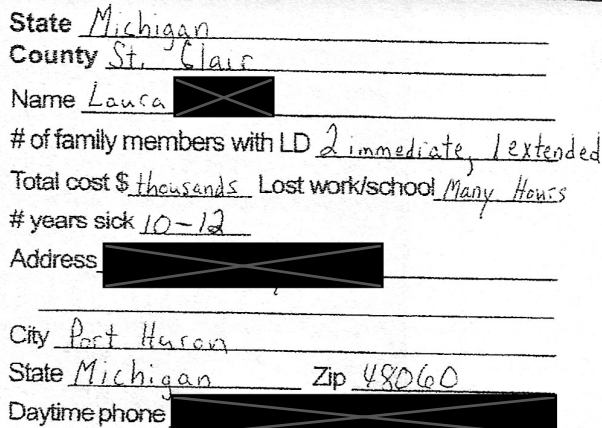 State Michigan
County St. Clair
Name Laura
# of family members with LD 2 immediate, 1 extended
Total cost $ thousands Lost work/school Many Hours
# years sick 10-12
Address
City Port Huron
State Michigan Zip 48060
Daytime phone